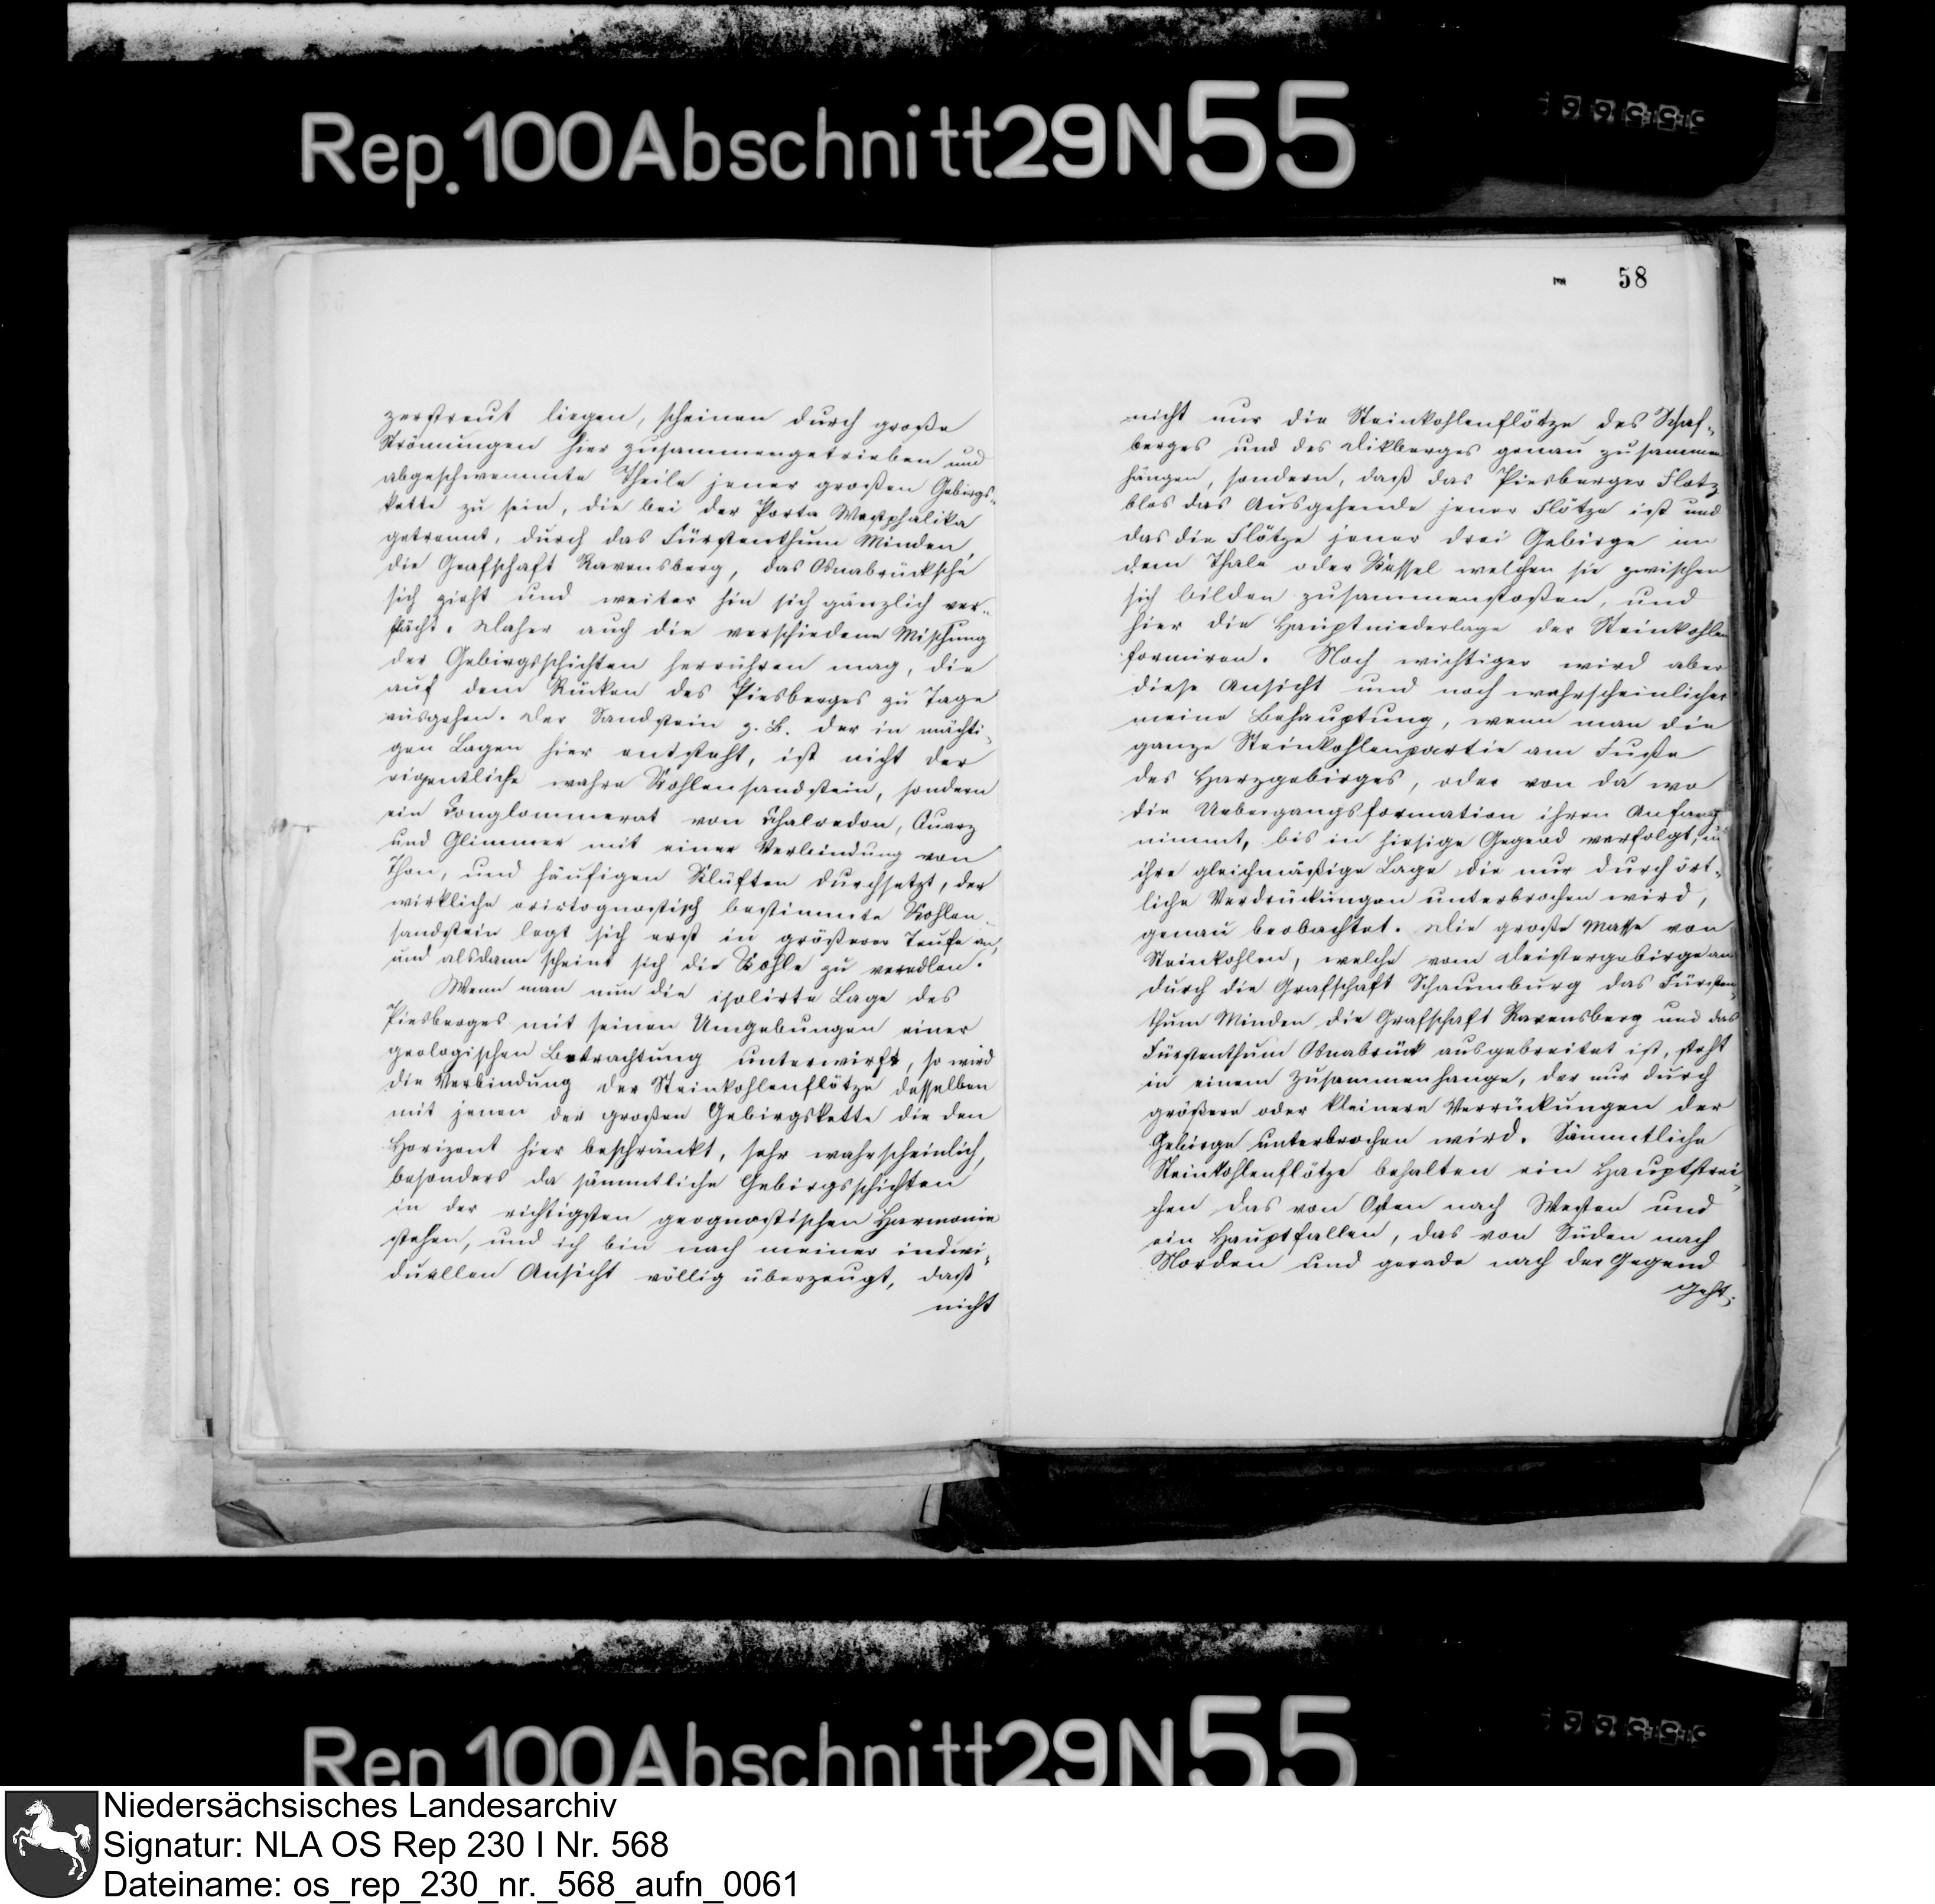 Rep. 100 Abschnitt 29 N 55
58
zerstreut liegen, scheinen durch große
Strömungen hier zusammengetrieben und
abgeschwemmte Theile jener großen Gebirgs-
kette zu sein, die bei der Porta Westphalika
getrennt, durch das Fürstenthum Minden,
die Grafschaft Ravensberg, das Osnabrücksche
sich zieht und weiter hin sich gänzlich ver-
flächt. Daher auch die verschiedene Mischung
der Gebirgsschichten herrühren mag, die
auf dem Rücken des Piesberges zu Tage
ausgehen. Der Sandstein z. B. der in mächti-
gen Lagen hier entsteht, ist nicht der
eigentliche wahre Kohlensandstein, sondern
ein Conglommerat von Chalcedon, Quarz
und Glimmer mit einer Verbindung von
Thon, und häufigen Klüften durchsetzt, der
wirkliche orictognostisch bestimmte Kohlen-
sandstein legt sich erst in größerer Teufe an,
und alsdann scheint sich die Kohle zu veredlen.
Wenn man nun die isolirte Lage des
Piesberges mit seinen Umgebungen einer
geologischen Betrachtung unterwirft, so wird
die Verbindung der Steinkohlenflötze desselben
mit jenen der großen Gebirgskette die den
Horizont hier beschränkt, sehr wahrscheinlich,
besonders da sämmtliche Gebirgsschichten
in der richtigsten geognostischen Harmonie
stehen, und ich bin nach meiner indivi-
duellen Ansicht völlig überzeugt, daß
nicht
nicht nur die Steinkohlenflötze des Schaf-
berges und des Dikberges genau zusammen
hängen, sondern, daß das Piesberger Flötz
blos das Ausgehende jener Flötze ist und
das die Flötze jener drei Gebirge in
dem Thale oder Kessel welchen sie zwischen
sich bilden zusammenstoßen, und
hier die Hauptniederlage der Steinkohlen
formiren. Noch wichtiger wird aber
diese Ansicht und noch wahrscheinlicher
meine Behauptung, wenn man die
ganze Steinkohlenpartie am Fuße
des Harzgebirges, oder von da wo
die Uebergangsformation ihren Anfang
nimmt, bis in hiesige Gegend verfolgt, u
ihre gleichmäßige Lage die nur durch ört-
liche Verdrückungen unterbrochen wird,
genau beobachtet. Die große Masse von
Steinkohlen, welche vom Deistergebirge an
durch die Grafschaft Schaumburg das Fürsten-
thum Minden die Grafschaft Ravensberg und das
Fürstenthum Osnabrück ausgebreitet ist, steht
in einem Zusammenhange, der nur durch
größere oder kleinere Verrückungen der
Gebirge unterbrochen wird. Sämmtliche
Steinkohlenflötze behalten ein Hauptstrei-
chen das von Osten nach Westen und
ein Hauptfallen, das von Süden nach
Norden und gerade nach der Gegend
geht,
Rep 100 Abschnitt 29 N 55
Niedersächsisches Landesarchiv
Signatur: NLA OS Rep 230 I Nr. 568
Dateiname: os_rep_230_nr._568_aufn_0061